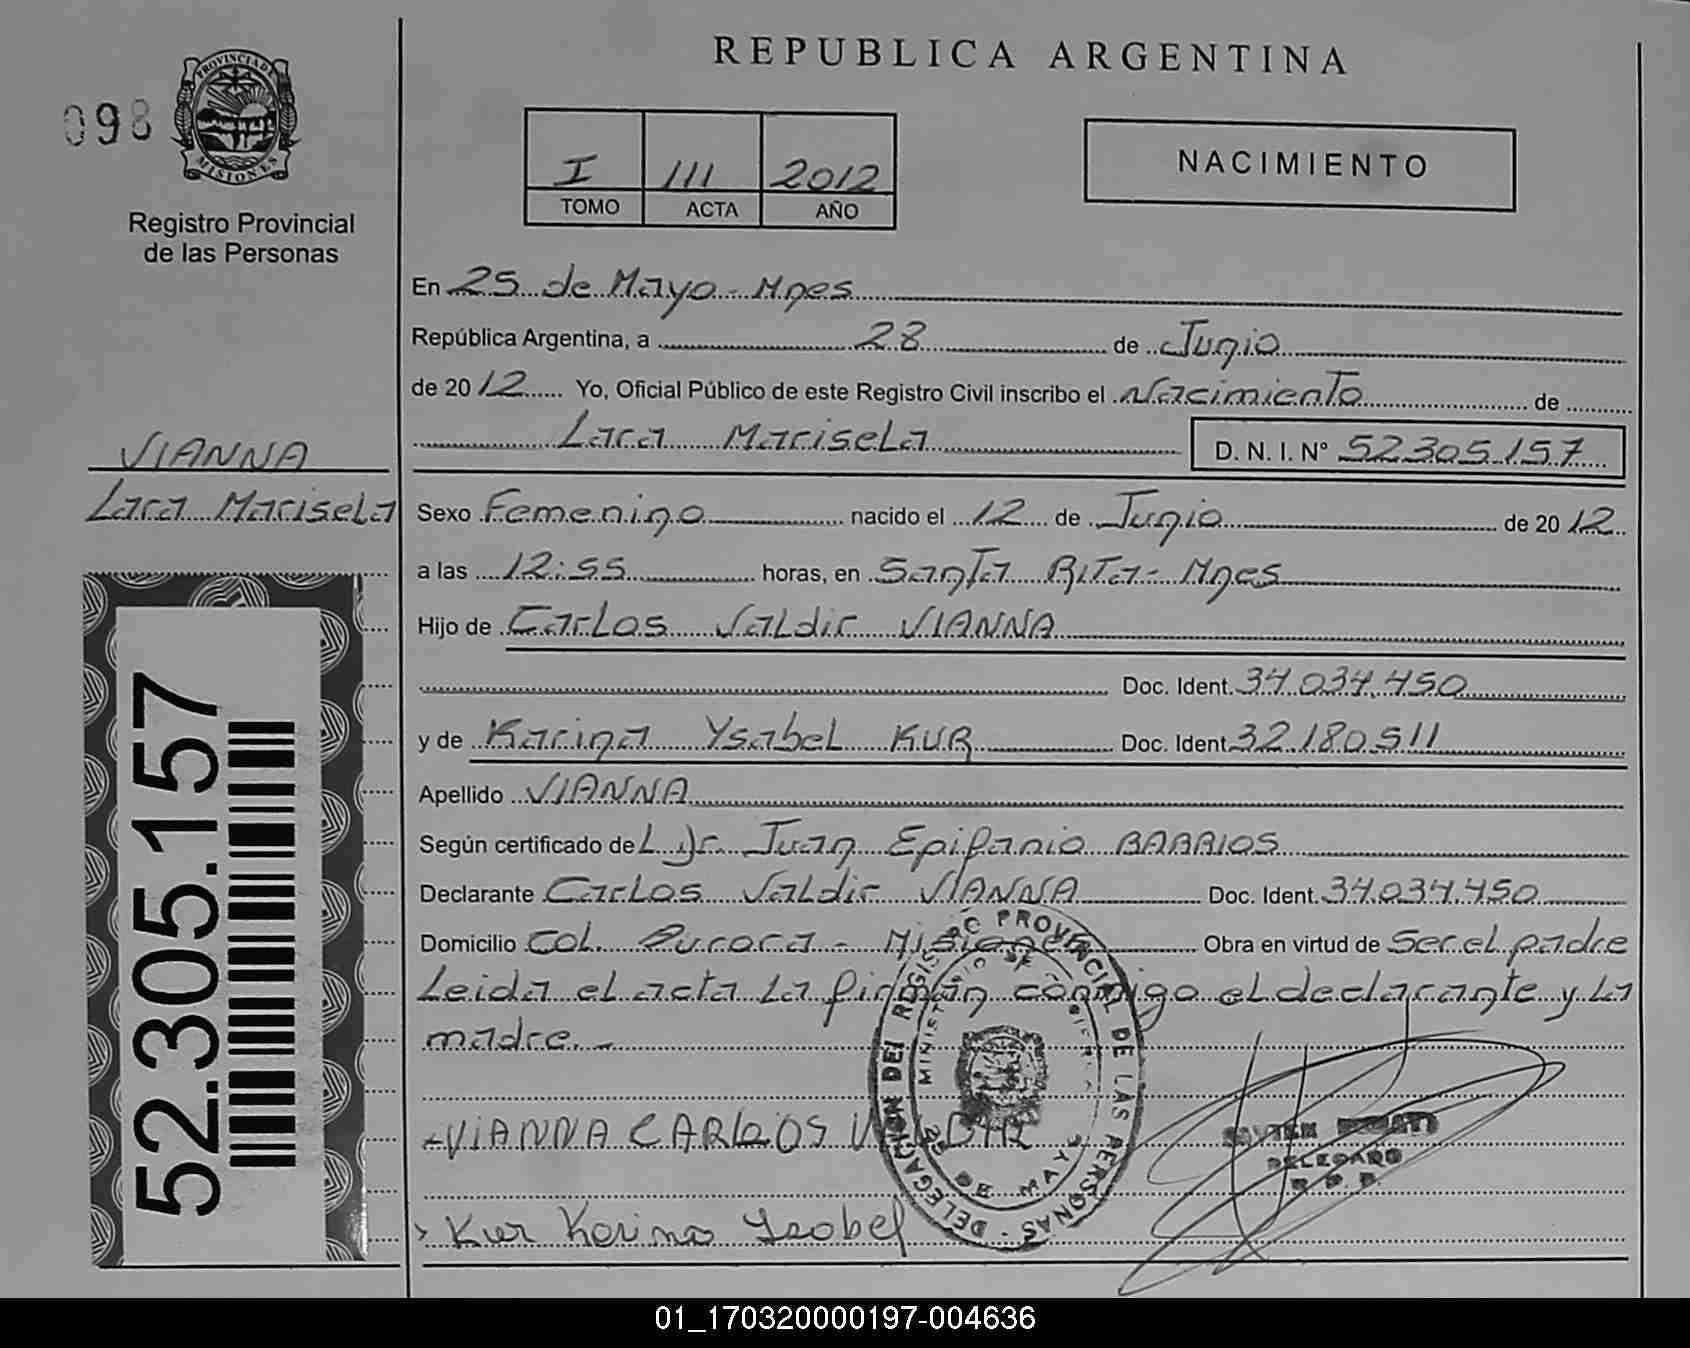 REPUBLICA ARGENTINA
098
PROVINCIA DE
MISIONES
Registro Provincial
de las Personas
I 111 2012
TOMO ACTA AÑO
NACIMIENTO
En 25 de Mayo - Mnes
República Argentina, a 28 de Junio
de 2012 Yo, Oficial Público de este Registro Civil inscribo el Nacimiento de
Lara Marisela D. N. I. Nº 52305157
VIANNA
Lara Marisela
Sexo Femenino nacido el 12 de Junio de 2012
a las 12:55 horas, en Santa Rita - Mnes
Hijo de Carlos Valdir VIANNA
Doc. Ident. 34.034.450
y de Karina Ysabel KUR Doc. Ident. 32.180511
Apellido VIANNA
Según certificado de L Dr. Juan Epifanio BARRIOS
Declarante Carlos Valdir VIANNA Doc. Ident. 34.034.450
Domicilio Col. Aurora - Misiones Obra en virtud de Ser el padre
Leida el acta la firman conmigo el declarante y la
madre. -
52.305.157
VIANNA CARLOS VALDIR
Kur Karina Isabel
DELEGACION DEL REGISTRO PROVINCIAL DE LAS PERSONAS
MINISTERIO DE GOBIERNO
25 DE MAYO
DELEGADO
R. P. P.
01_170320000197-004636